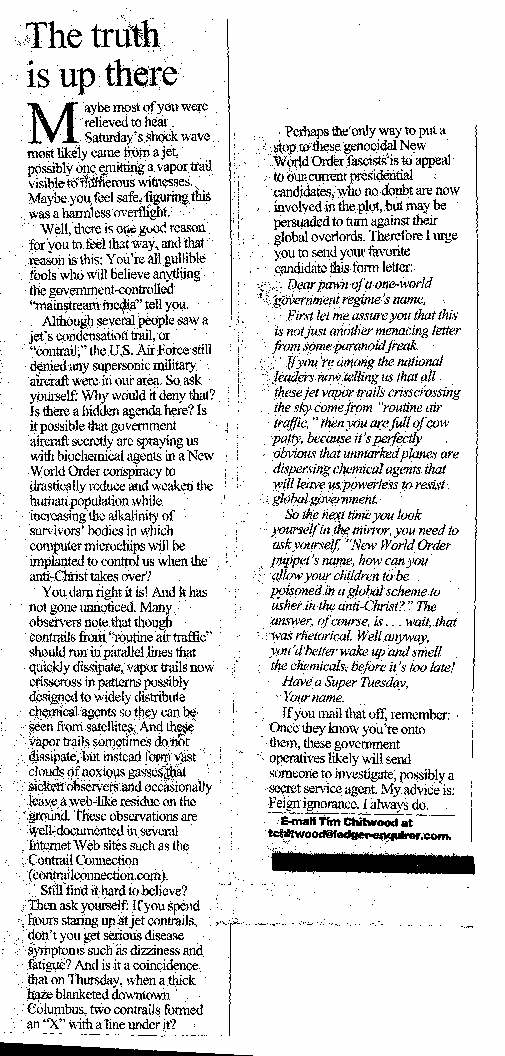 The truth
is up there
Maybe most of you were
relieved to hear
Saturday's shock wave
most likely came from a jet,
possibly one emitting a vapor trail
visible to numerous witnesses.
Maybe you feel safe, figuring this
was a harmless overflight.
Well, there is one good reason
for you to feel that way, and that
reason is this: You're all gullible
fools who will believe anything
the government-controlled
"mainstream media" tell you.
Although several people saw a
jet's condensation trail, or
"contrail," the U.S. Air Force still
denied any supersonic military
aircraft were in our area. So ask
yourself: Why would it deny that?
Is there a hidden agenda here? Is
it possible that government
aircraft secretly are spraying us
with biochemical agents in a New
World Order conspiracy to
drastically reduce and weaken the
human population while
increasing the alkalinity of
survivors' bodies in which
computer microchips will be
implanted to control us when the
anti-Christ takes over?
You darn right it is! And it has
not gone unnoticed. Many
observers note that though
contrails from "routine air traffic"
should run in parallel lines that
quickly dissipate, vapor trails now
crisscross in patterns possibly
designed to widely distribute
chemical agents so they can be
seen from satellites. And these
vapor trails sometimes do not
dissipate, but instead form vast
clouds of noxious gasses that
sicken observers and occasionally
leave a web-like residue on the
ground. These observations are
well-documented in several
Internet Web sites such as the
Contrail Connection
(contrailconnection.com).
Still find it hard to believe?
Then ask yourself: If you spend
hours staring up at jet contrails,
don't you get serious disease
symptoms such as dizziness and
fatigue? And is it a coincidence
that on Thursday, when a thick
haze blanketed downtown
Columbus, two contrails formed
an "X" with a line under it?
Perhaps the only way to put a
stop to these genocidal New
World Order fascists is to appeal
to our current presidential
candidates, who no doubt are now
involved in the plot, but may be
persuaded to turn against their
global overlords. Therefore I urge
you to send your favorite
candidate this form letter:
Dear pawn of a one-world
government regime's name,
First let me assure you that this
is not just another menacing letter
from some paranoid freak.
If you're among the national
leaders now telling us that all
these jet vapor trails crisscrossing
the sky come from "routine air
traffic," then you are full of cow
patty, because it's perfectly
obvious that unmarked planes are
dispersing chemical agents that
will leave us powerless to resist
global government.
So the next time you look
yourself in the mirror, you need to
ask yourself, "New World Order
puppet's name, how can you
allow your children to be
poisoned in a global scheme to
usher in the anti-Christ?" The
answer, of course, is . . . wait, that
was rhetorical. Well anyway,
you'd better wake up and smell
the chemicals, before it's too late!
Have a Super Tuesday,
Your name.
If you mail that off, remember:
Once they know you're onto
them, these government
operatives likely will send
someone to investigate, possibly a
secret service agent. My advice is:
Feign ignorance. I always do.
E-mail Tim Chitwood at
tchitwood@ledger-enquirer.com.